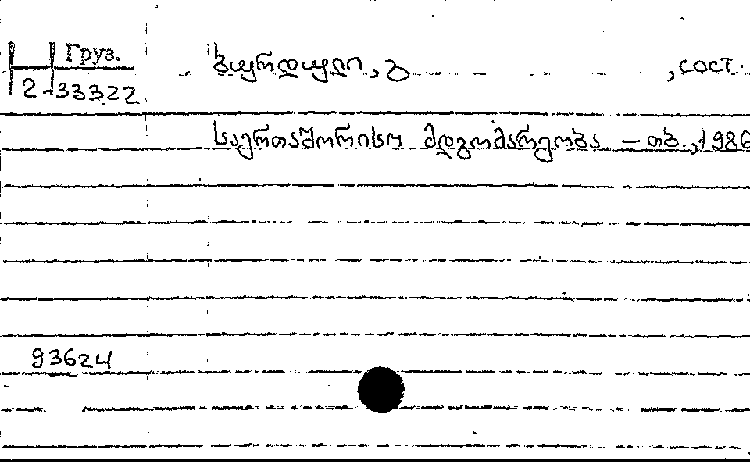 Груз.
2-33322
, გ , сост.
საერთაშორისო მდგომარეობა – თბ., 1986
93624